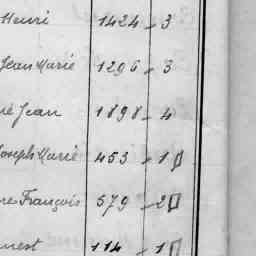 Henri 1424 - 3
Jean Marie 1296 - 3
Jean 1898 - 4
Joseph Marie 453 - 1
François 579 - 2
114 - 1